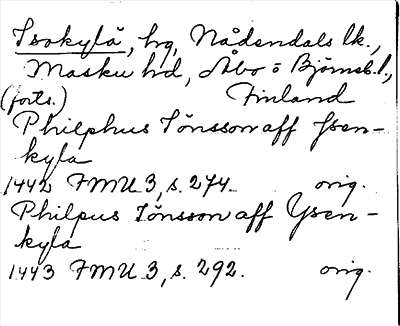 Isokylä, hg, Nådendals lk.,
Masku hd, Åbo o Björneb. l.,
(forts.) Finland
Philphus Jönsson aff Ysen-
kyla
1442 FMU 3, s. 274. orig.
Philpus Jönsson aff Ysen-
kyla
1443 FMU 3, s. 292. orig.